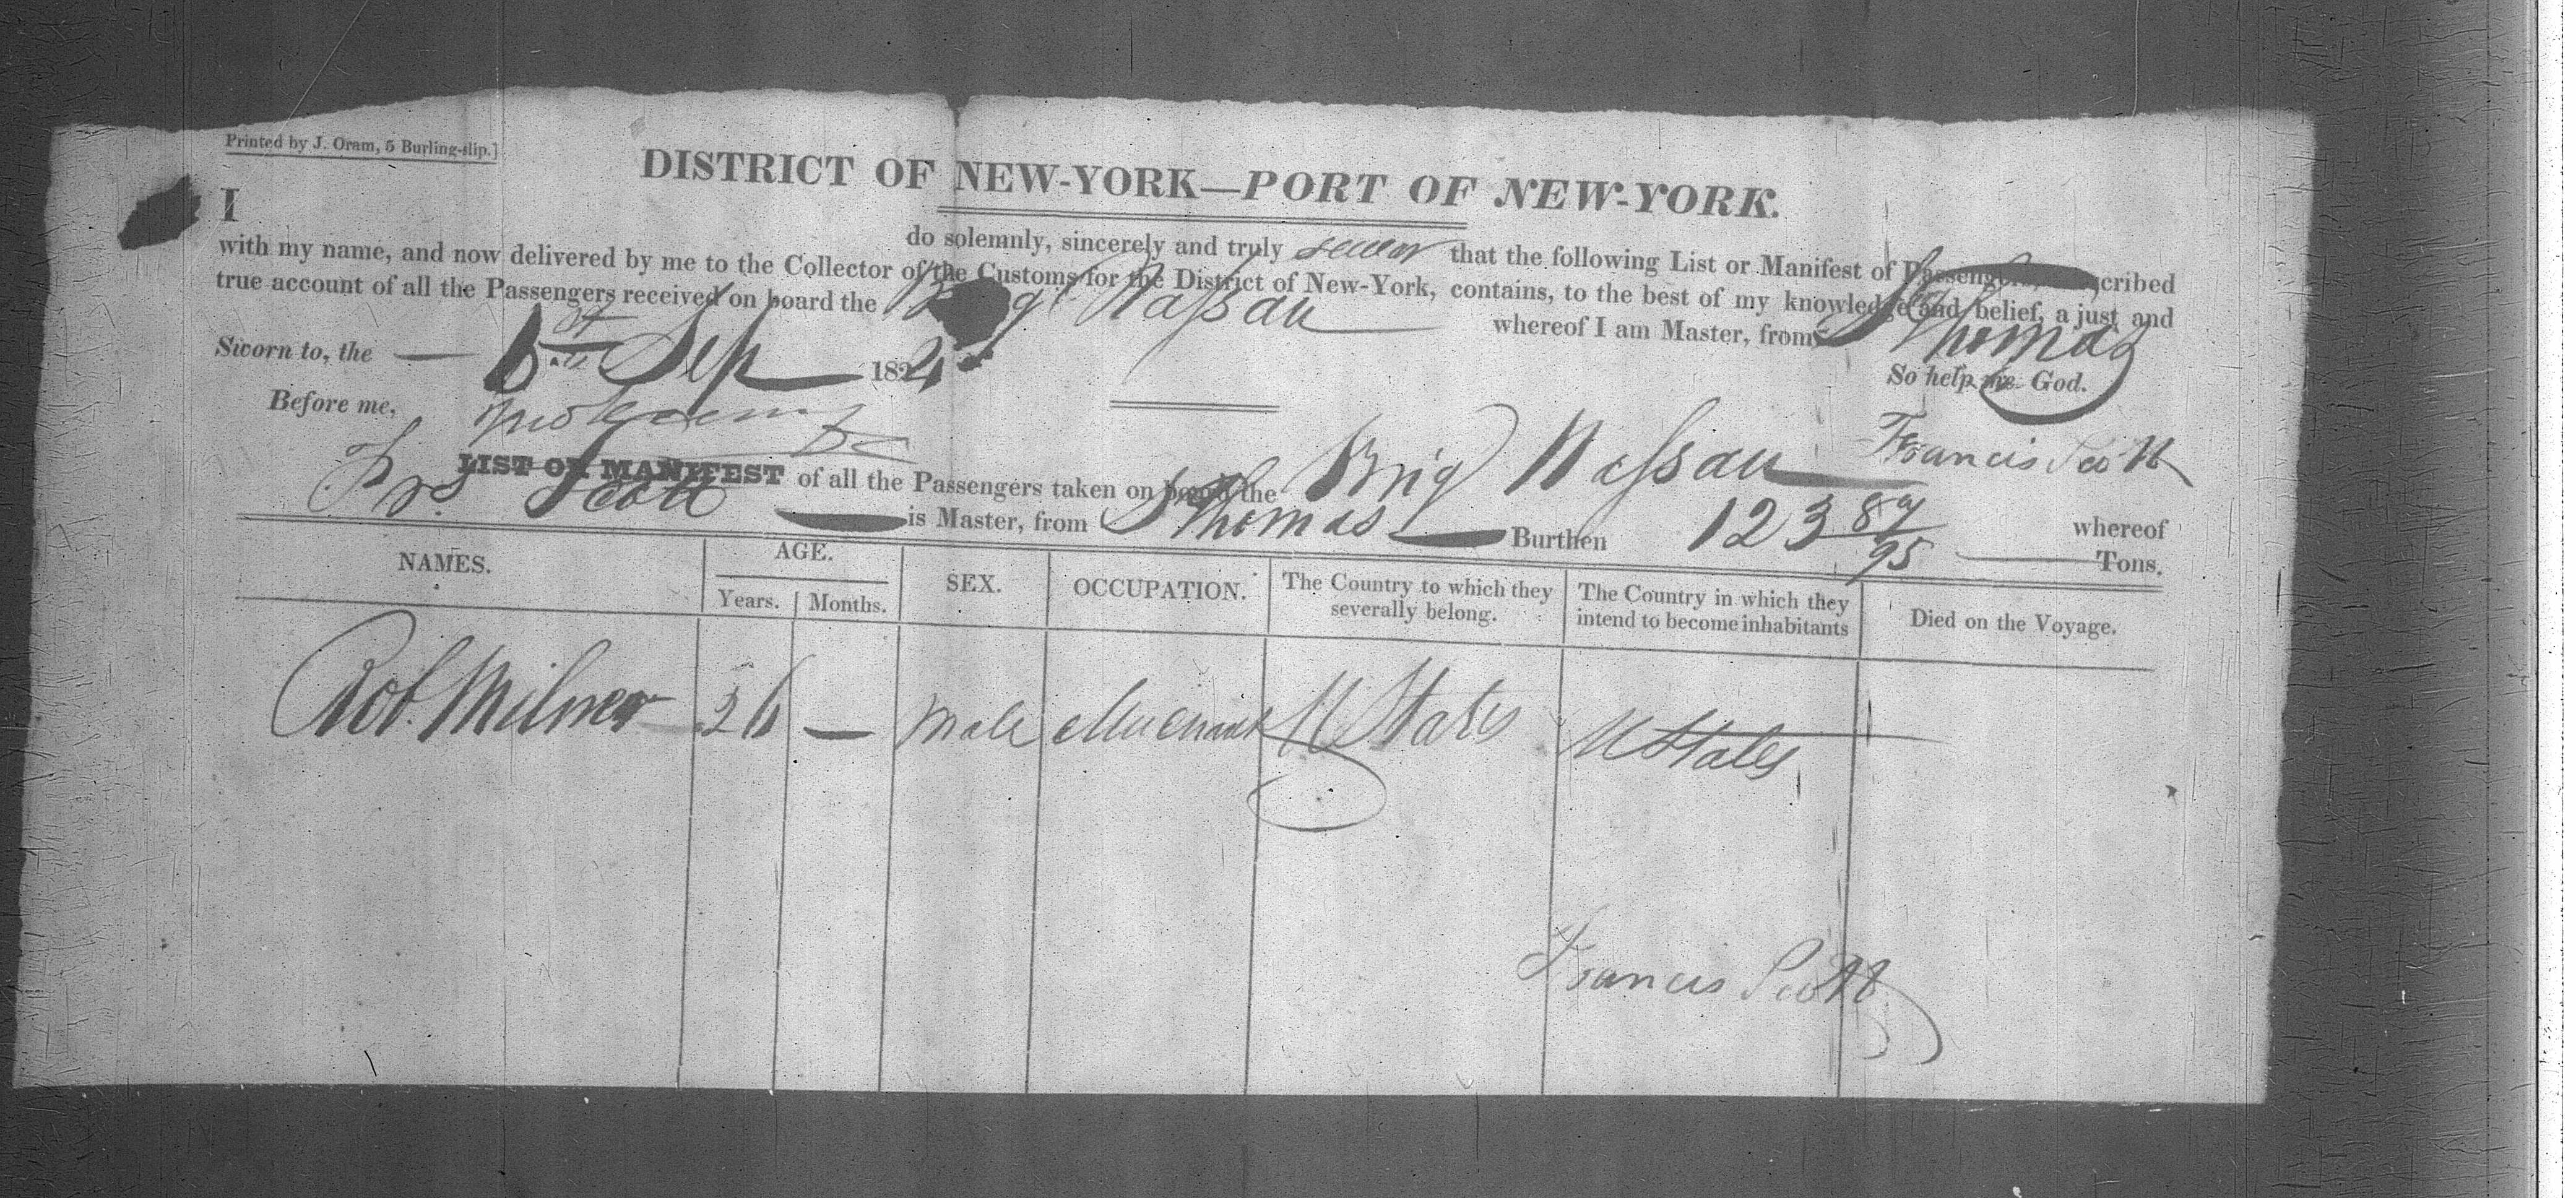 Printed by J. Oram, 5 Burling-slip.]
DISTRICT OF NEW-YORK—PORT OF NEW-YORK.
I do solemnly, sincerely and truly swear that the following List or Manifest of Passengers, scribed
with my name, and now delivered by me to the Collector of the Customs for the District of New-York, contains, to the best of my knowledge and belief, a just and
true account of all the Passengers received on board the Brig Nassau whereof I am Master, from St Thomas
Sworn to, the Sep 1824 So help me God.
Before me,
Francis Scott
LIST OR MANIFEST of all the Passengers taken on board the Brig Nassau whereof
Frs Scott is Master, from St Thomas Burthen 123 87/95 Tons.
NAMES. AGE. SEX. OCCUPATION. The Country to which they severally belong. The Country in which they intend to become inhabitants Died on the Voyage.
Years. Months.
Rob. Milner 26 — Male Merchant U States U States
Francis Scott